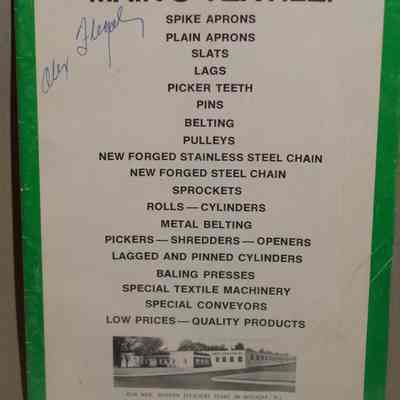 SPIKE APRONS
PLAIN APRONS
SLATS
LAGS
PICKER TEETH
PINS
BELTING
PULLEYS
NEW FORGED STAINLESS STEEL CHAIN
NEW FORGED STEEL CHAIN
SPROCKETS
ROLLS — CYLINDERS
METAL BELTING
PICKERS — SHREDDERS — OPENERS
LAGGED AND PINNED CYLINDERS
BALING PRESSES
SPECIAL TEXTILE MACHINERY
SPECIAL CONVEYORS
LOW PRICES — QUALITY PRODUCTS
OUR NEW, MODERN EFFICIENT PLANT IN